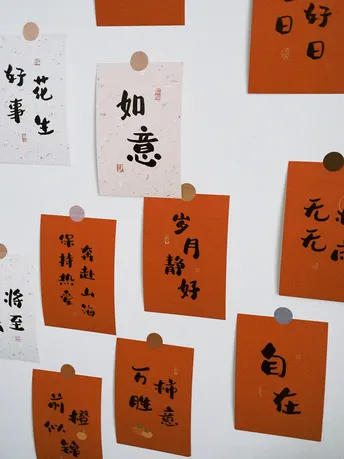 好日
日
好事
花生
如意
岁月
静好
无
无
保持热爱
奔赴山海
将至
自在
万柿
胜意
前橙
似锦